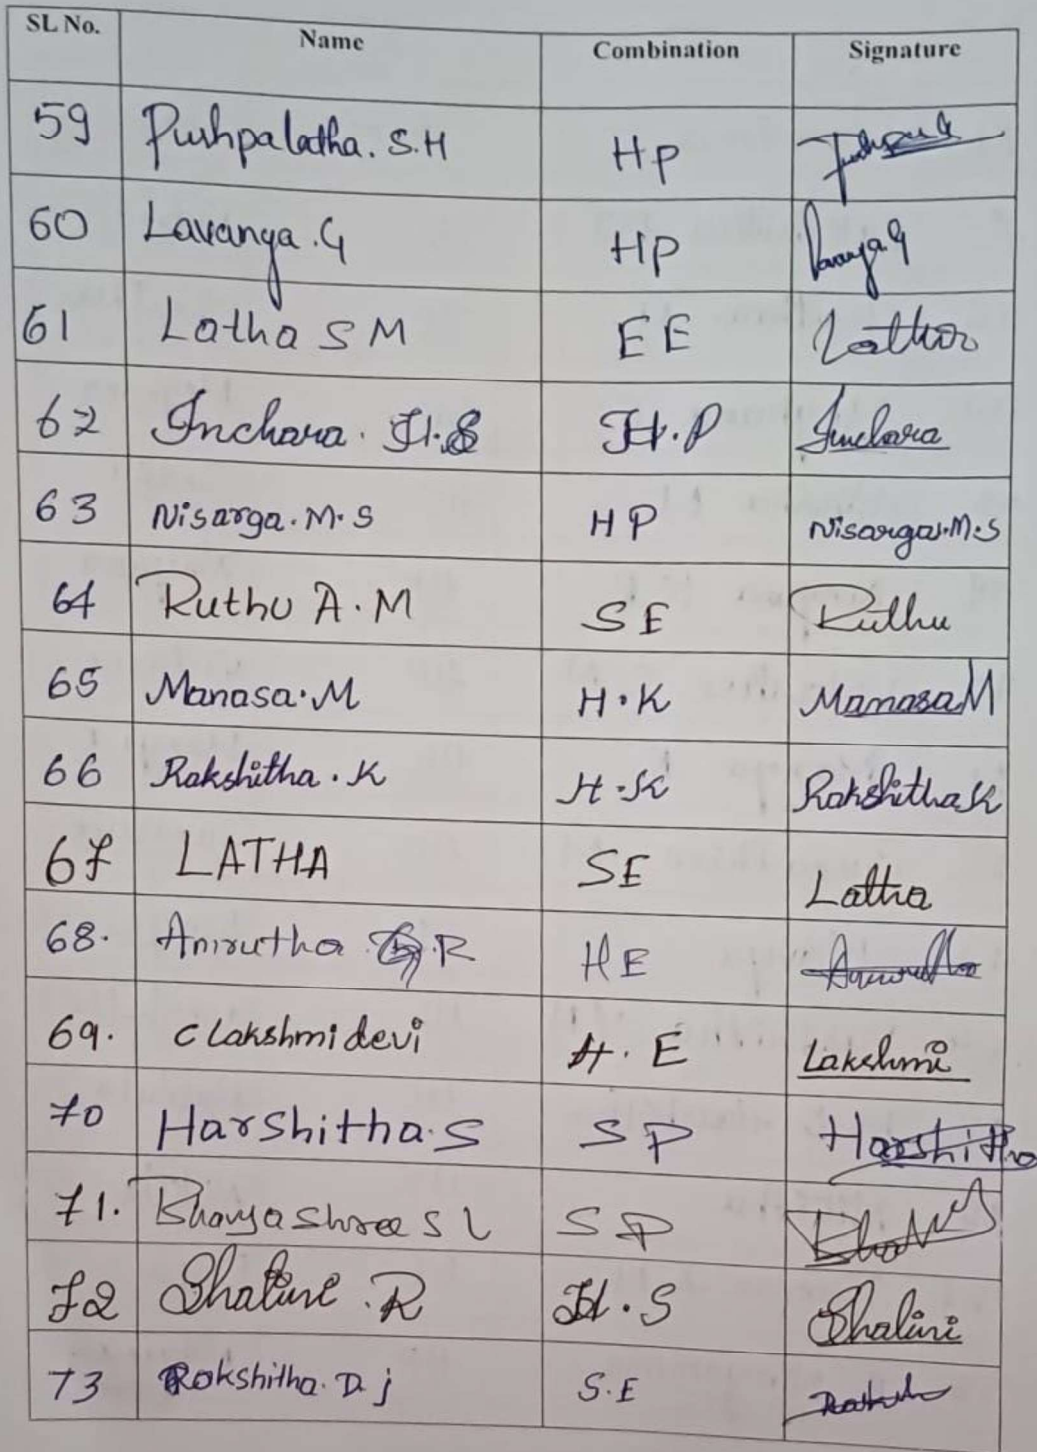 SL No. Name Combination Signature
59 Pushpalatha. S.H HP
60 Lavanya .G HP Lavanya.G
61 Latha S M EE Latha
62 Inchara. H.S H.P Inchara
63 Nisarga.M.S HP Nisarga.M.S
64 Ruthu A.M SE Ruthu
65 Manasa.M H.K Manasa M
66 Rakshitha.K H.K Rakshitha K
67 LATHA SE Latha
68. Anirutha R HE
69. C Lakshmidevi H.E Lakshmi
70 Harshitha.S SP Harshitha
71. Bhavyashree S L SP
72 Shalini .R H.S Shalini
73 Rakshitha.D.j S.E